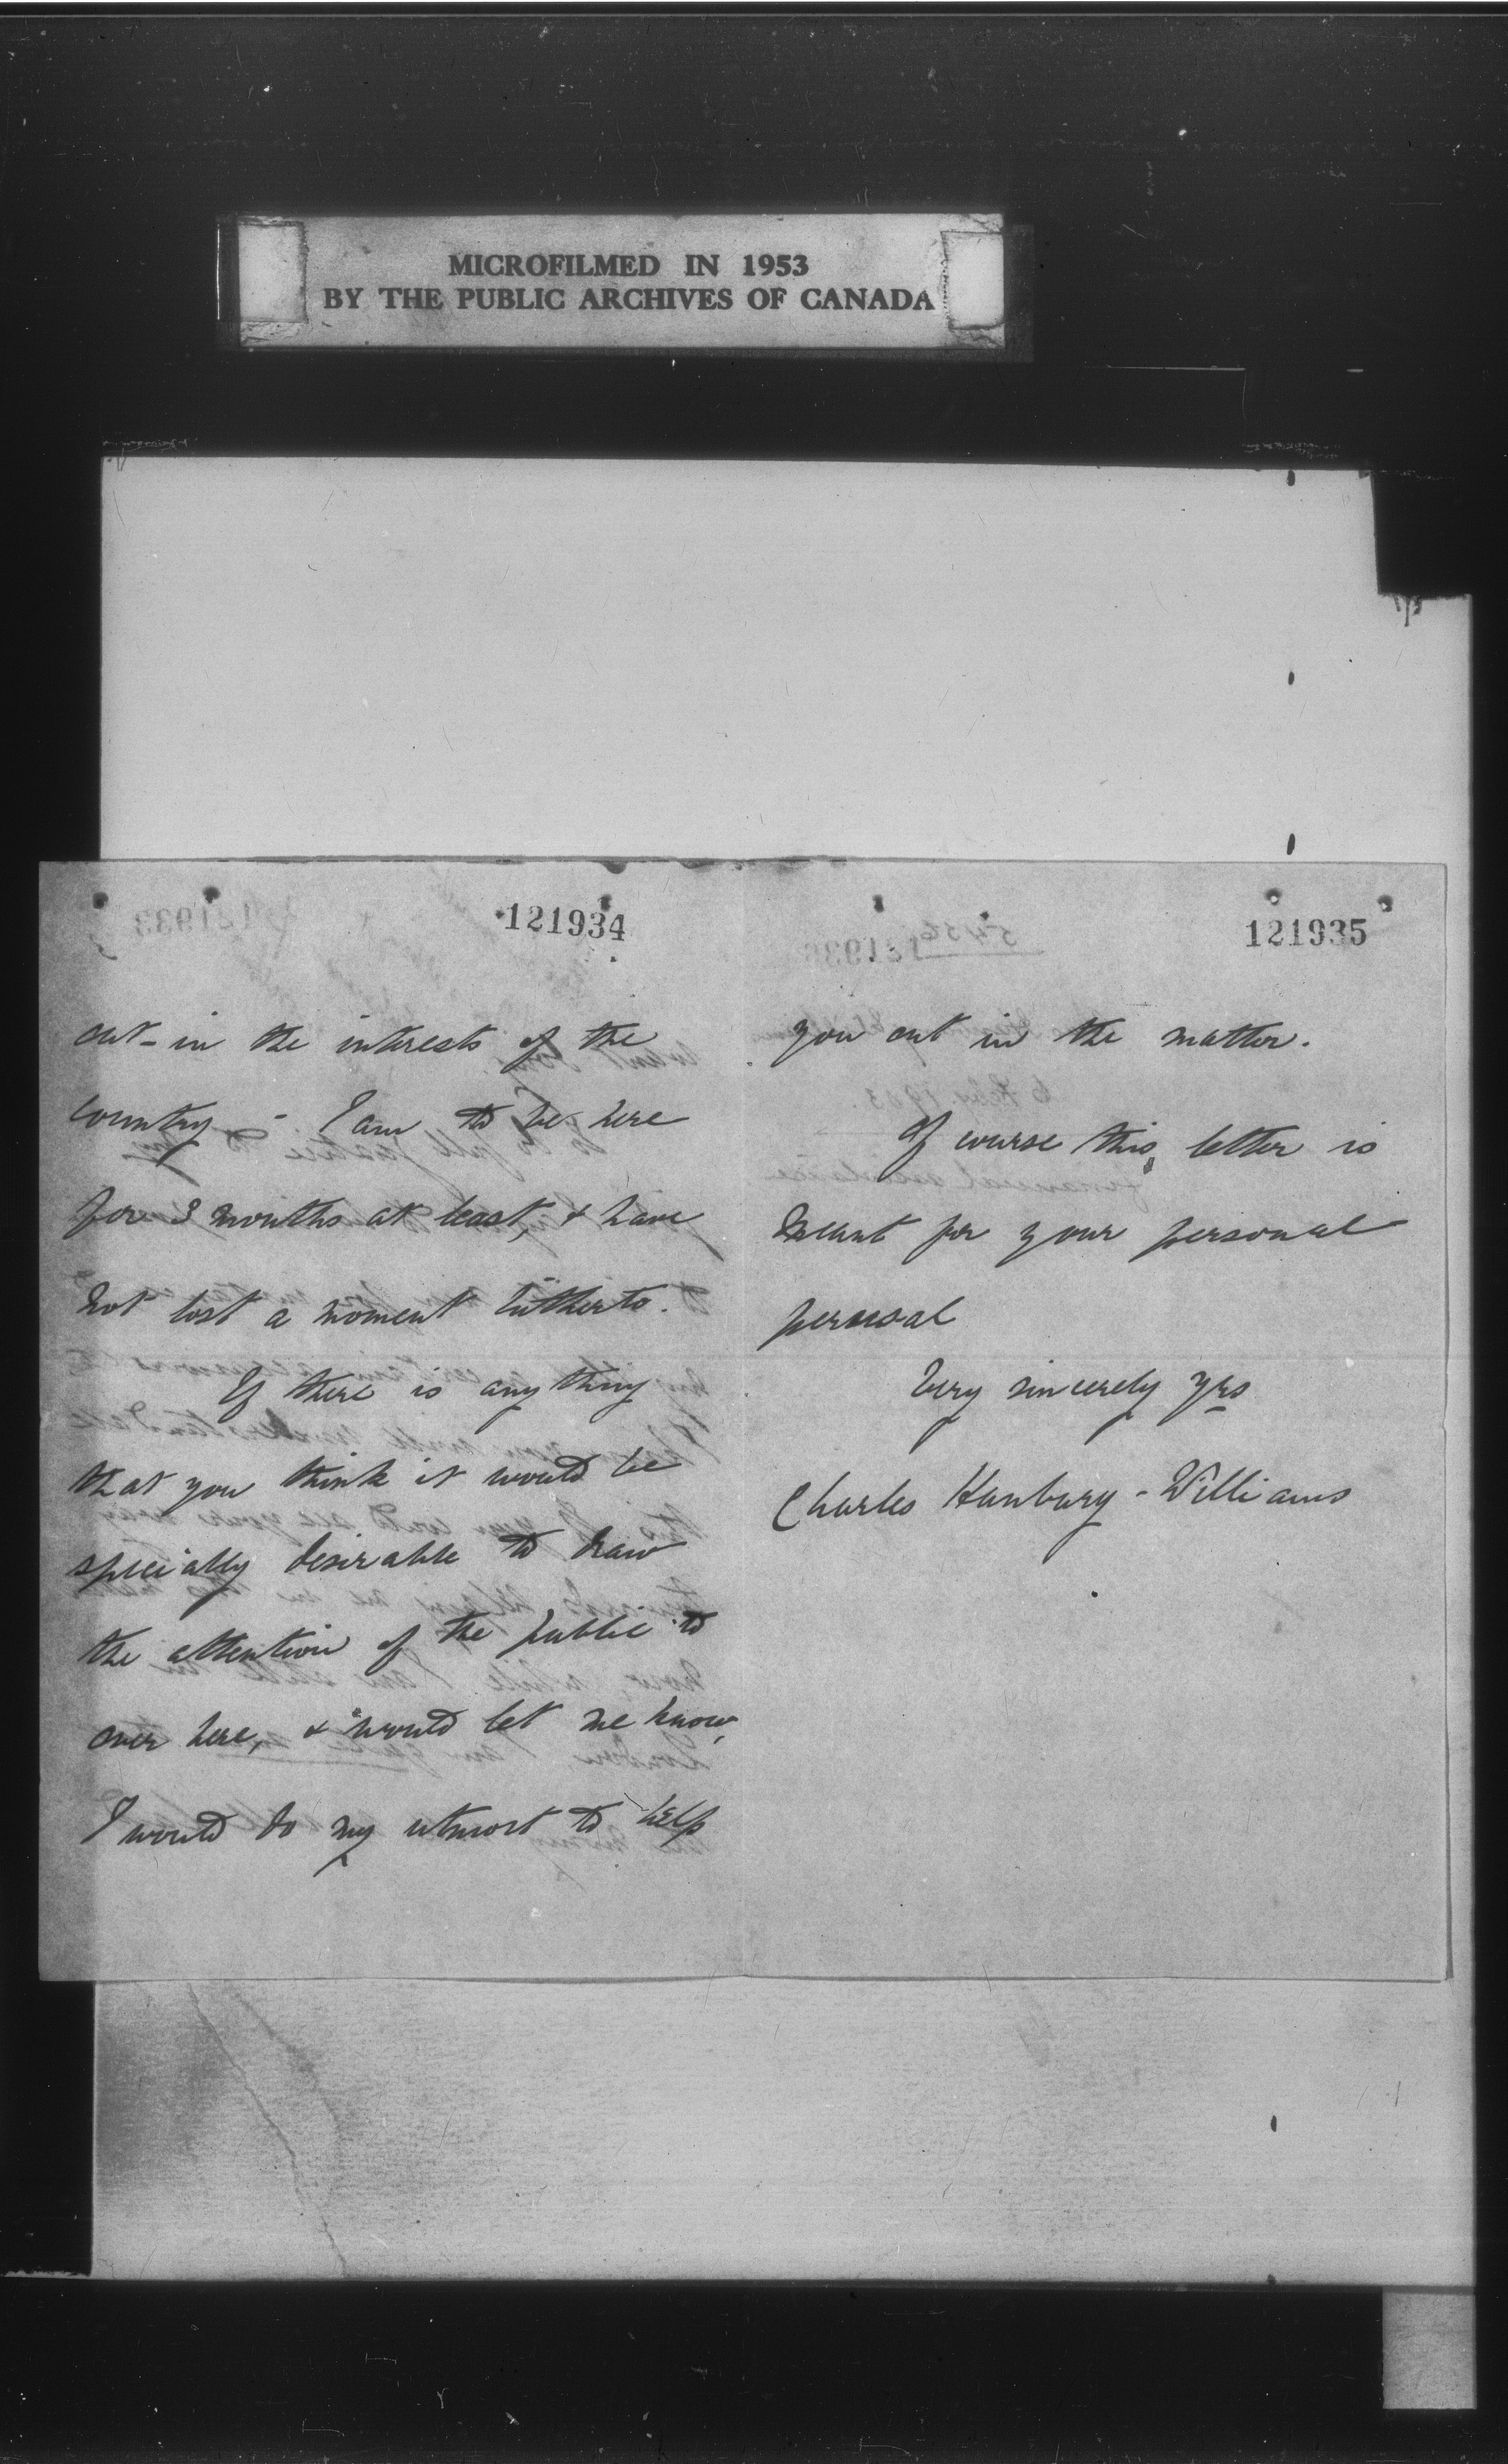 MICROFILMED IN 1953
BY THE PUBLIC ARCHIVES OF CANADA
121934
out - in the interests of the
country - I am to be here
for 3 months at least, & have
not lost a moment hitherto.
If there is anything
that you think it would be
specially desirable to draw
the attention of the public to
over here, & would let me know,
I would do my utmost to help
121935
you out in the matter.
Of course this letter is
meant for your personal
perusal
Very sincerely yrs
Charles Hanbury-Williams